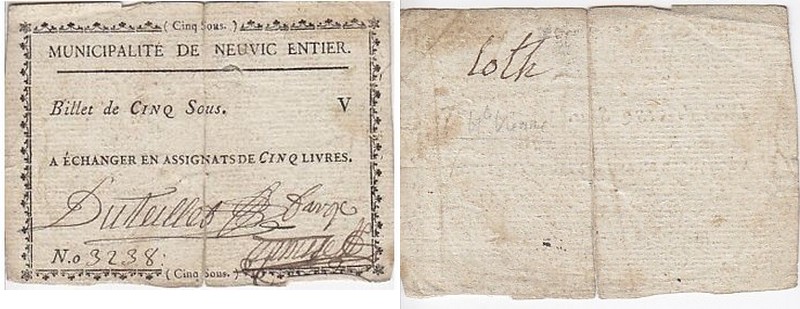 ( Cinq Sous. )
MUNICIPALITÉ DE NEUVIC ENTIER.
Billet de CINQ SOUS. V
A ÉCHANGER EN ASSIGNATS DE CINQ LIVRES.
Duteillet
N.o 3238.
( Cinq Sous. )
loth
Hte Vienne